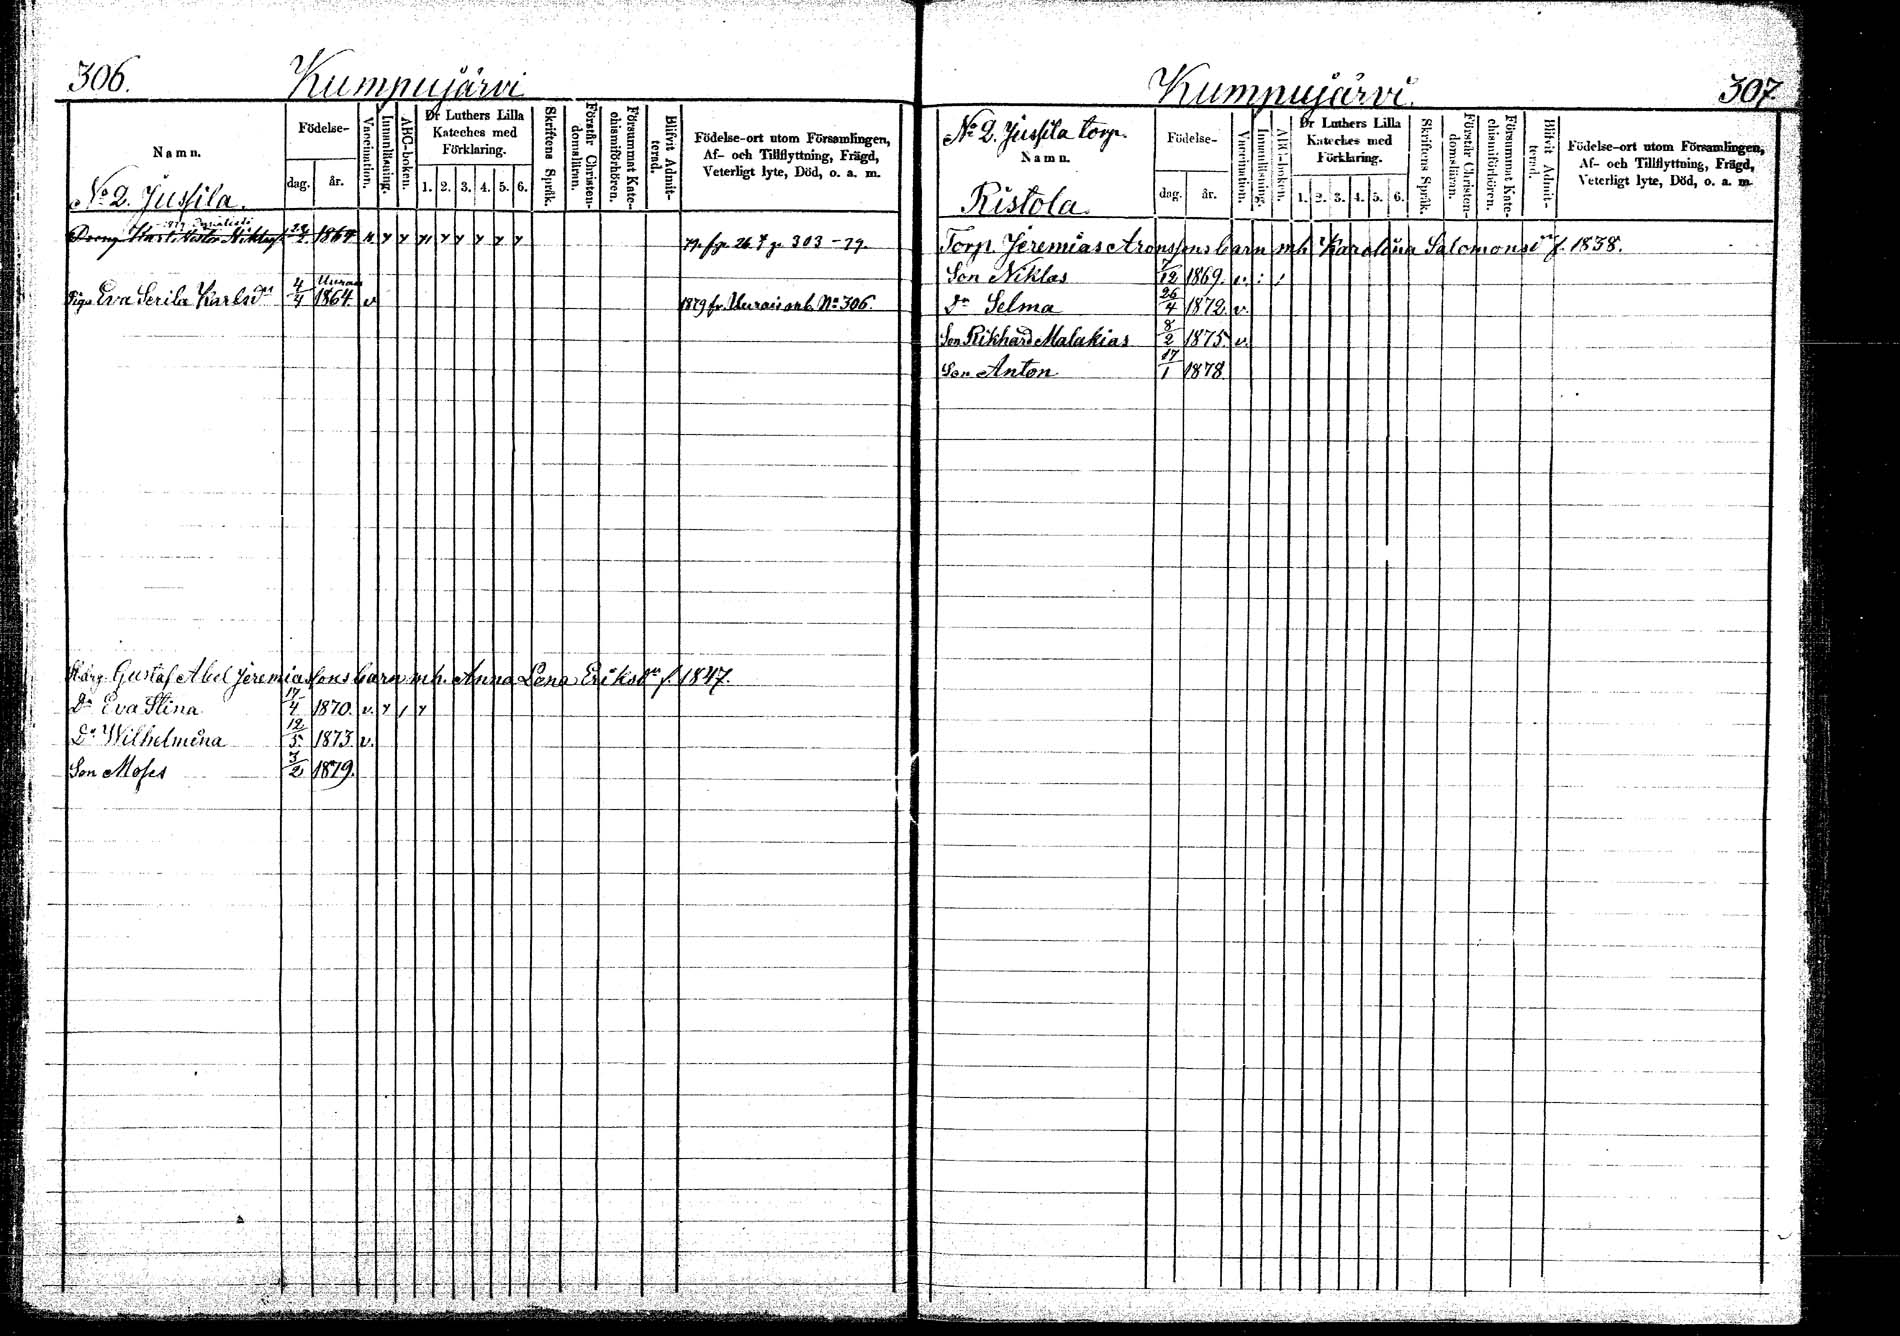 306. Kumpujärvi
Namn.
Födelse-
dag. år.
Vaccination.
Innanläsning.
ABC-boken.
Dr Luthers Lilla
Kateches med
Förklaring.
1. 2. 3. 4. 5. 6.
Skriftens Språk.
Förstår Christen-
domsläran.
Försummat Kate-
chismiförhören.
Blifvit Admit-
terad.
Födelse-ort utom Församlingen,
Af- och Tillflyttning, Frägd,
Veterligt lyte, Död, o. a. m.
No 2. Jussila.
Karl Nestor 1864
79 fr. 303 - 79.
Uurais
Piga Eva Serila Karlsdr 4/4 1864 v 1879 fr. Uurais No 306.
Gustaf Abel Jeremiassons barn m.h. Anna Lena Eriksdr f. 1847.
Dr Eva Stina 17/4 1870. v.
Dr Wilhelmina 12/5 1873. v.
Son Moses 3/2 1879.
Kumpujärvi. 307
No 2. Jussila torp.
Namn.
Ristola
Födelse-
dag. år.
Vaccination.
Innanläsning.
ABC-boken.
Dr Luthers Lilla
Kateches med
Förklaring.
1. 2. 3. 4. 5. 6.
Skriftens Språk.
Förstår Christen-
domsläran.
Försummat Kate-
chismiförhören.
Blifvit Admit-
terad.
Födelse-ort utom Församlingen,
Af- och Tillflyttning, Frägd,
Veterligt lyte, Död, o. a. m.
Torp. Jeremias Aronssons barn m.h. Karolina Salomonsdr f. 1838.
Son Niklas 7/12 1869. v.
Dr Selma 26/4 1872. v.
Son Rikhard Malakias 8/2 1875 v.
Son Anton 17/1 1878.